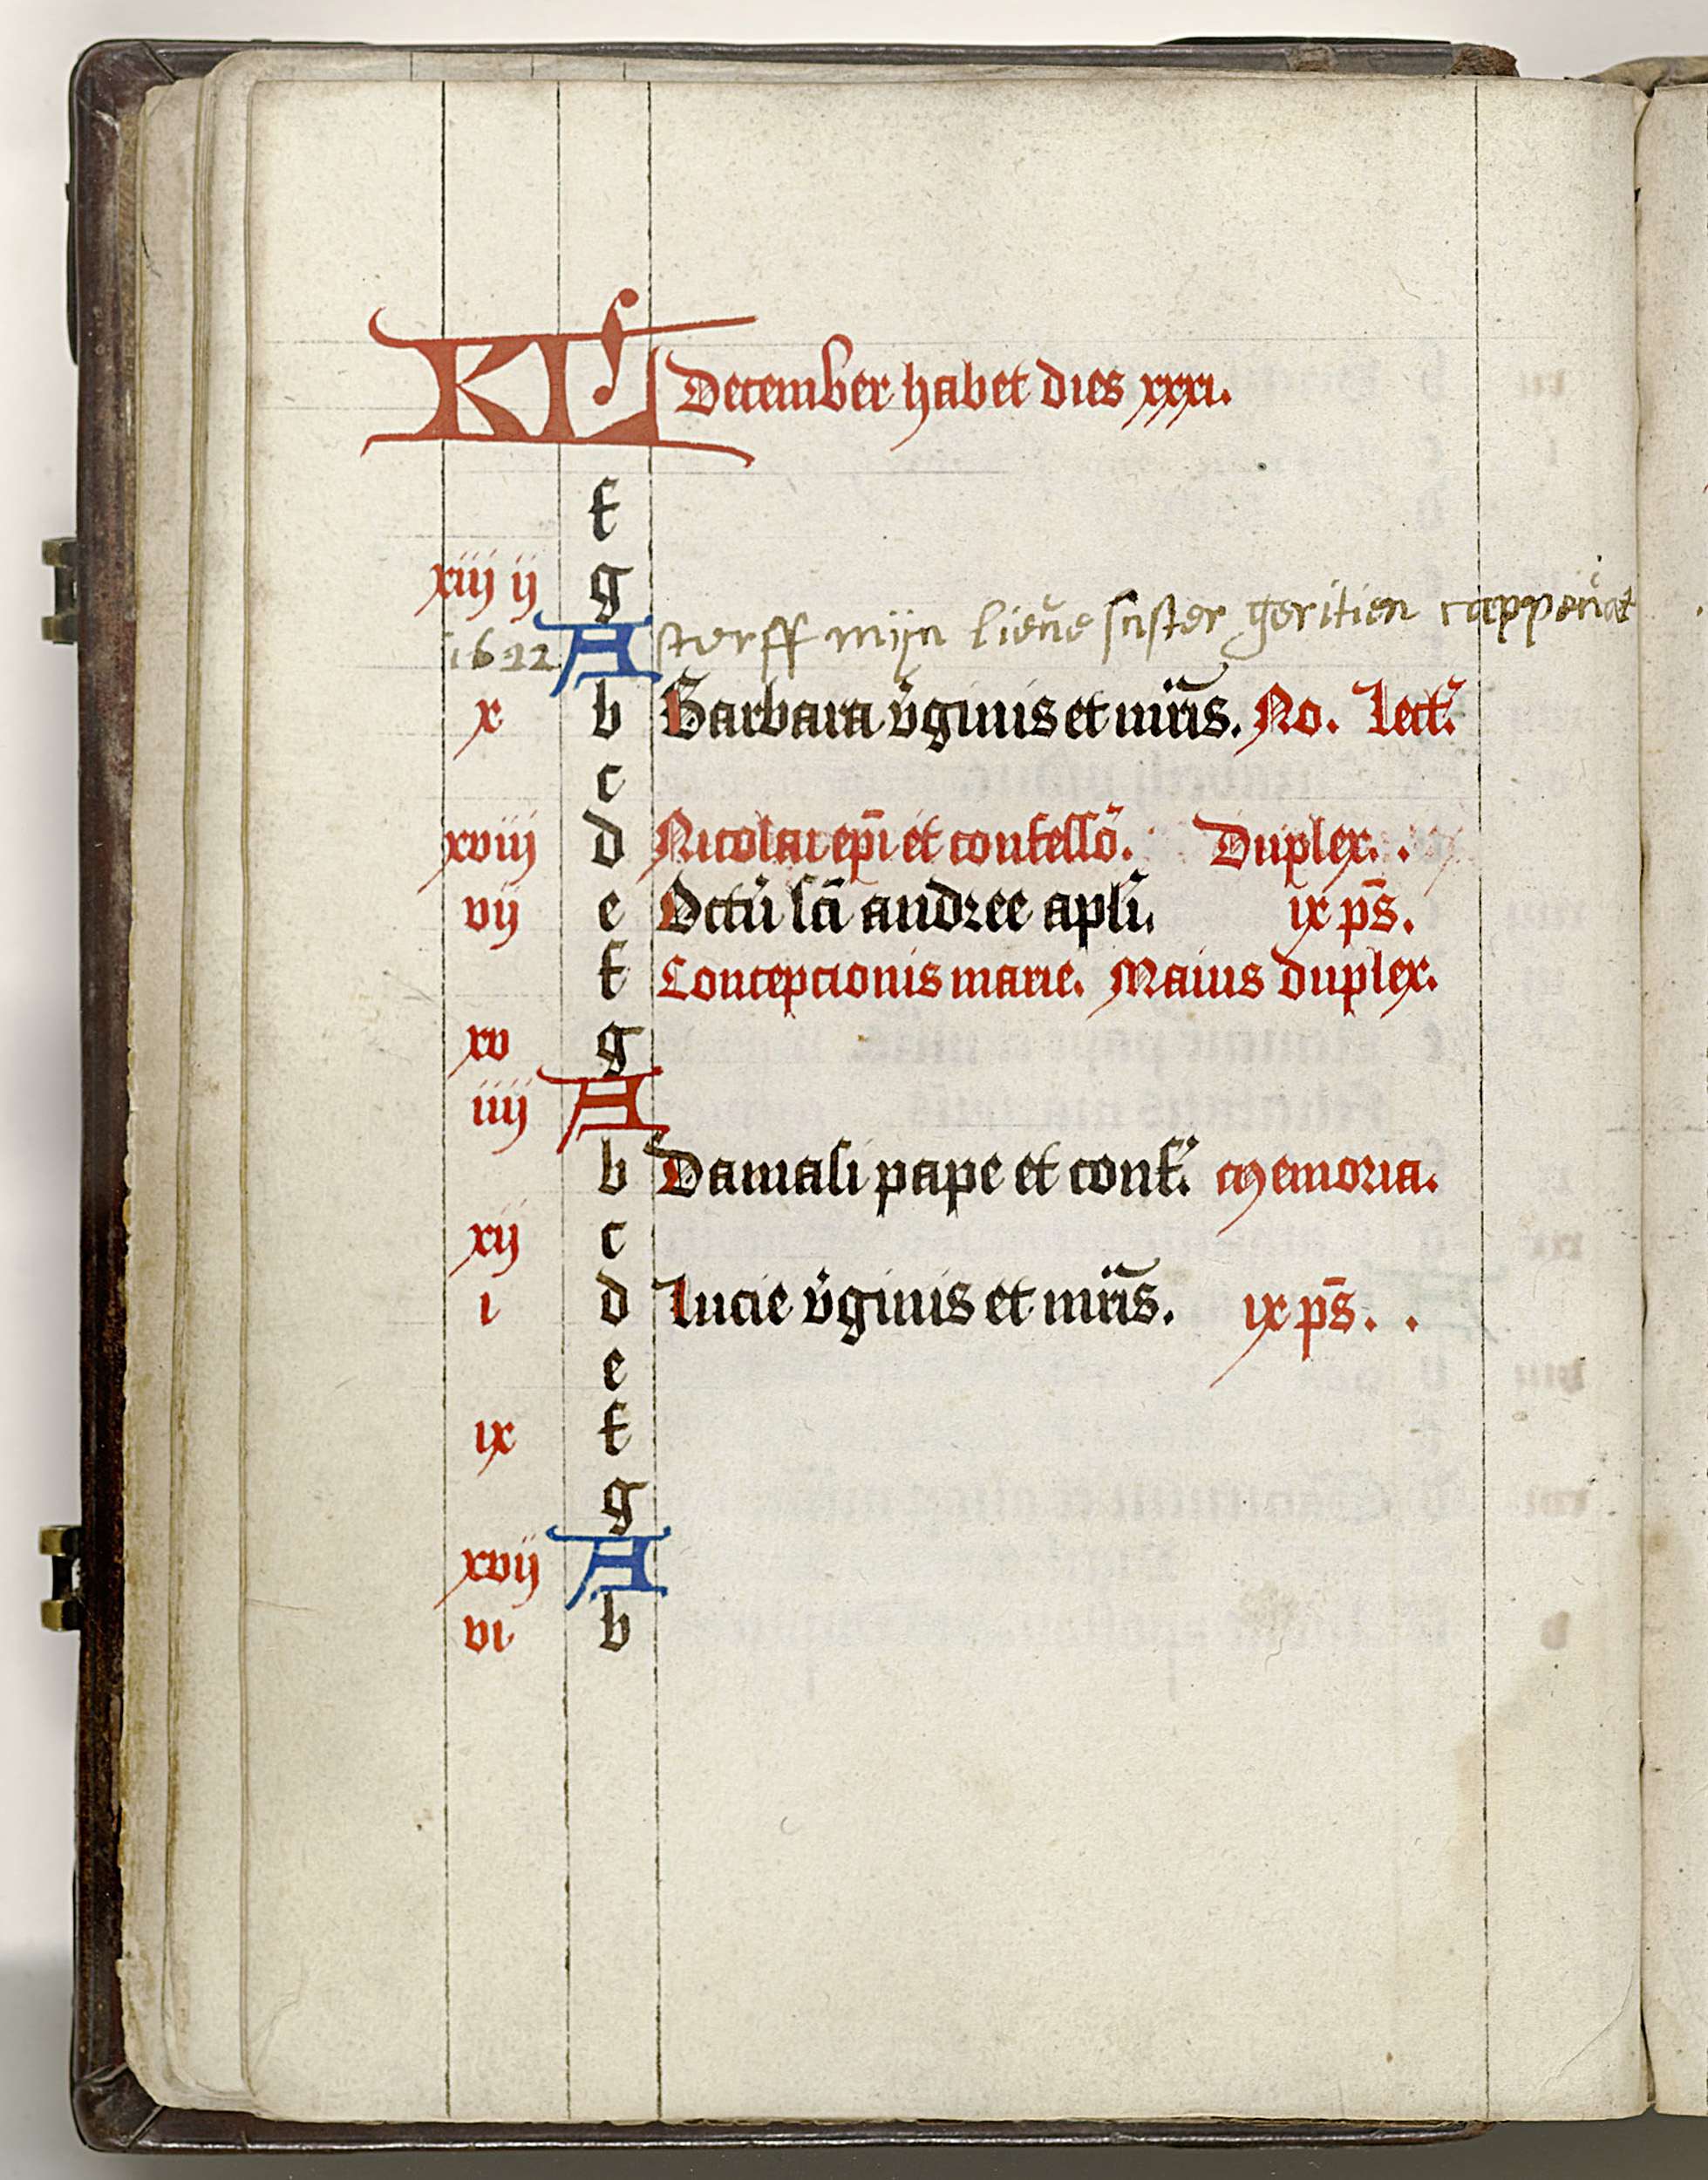 KL December habet dies xxxi.
f
xiij ij g
1622 A sterff mijn lieue suster geritien cappeniat
x b Barbara v̓ginis et mr̄is. No. Lect̓.
c
xviij d Nicolai ep̄i et confesso᷑. Duplex. .
vij e Octu᷑ sc̄i andree apl̓i. ix ps̄.
f Concepcionis marie. Maius duplex.
xv g
iiij A
b Damasi pape et conf̓. Memoria.
xij c
i d Lucie v̓ginis et mr̄is. ix ps̄. .
e
ix f
g
xvij A
vi b